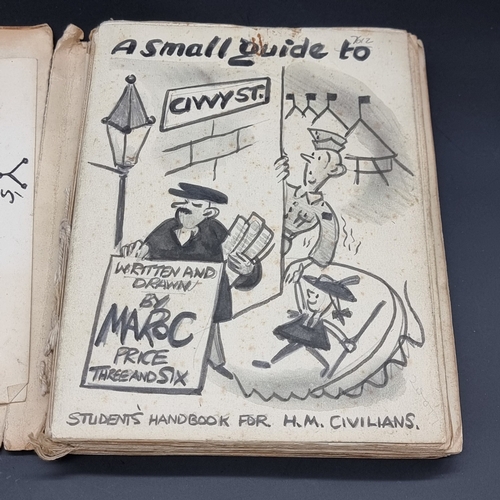 A small guide to
CIVVY ST.
WRITTEN AND
DRAWN
BY
MAROC
PRICE
THREE AND SIX
STUDENT'S HANDBOOK FOR H.M. CIVILIANS.